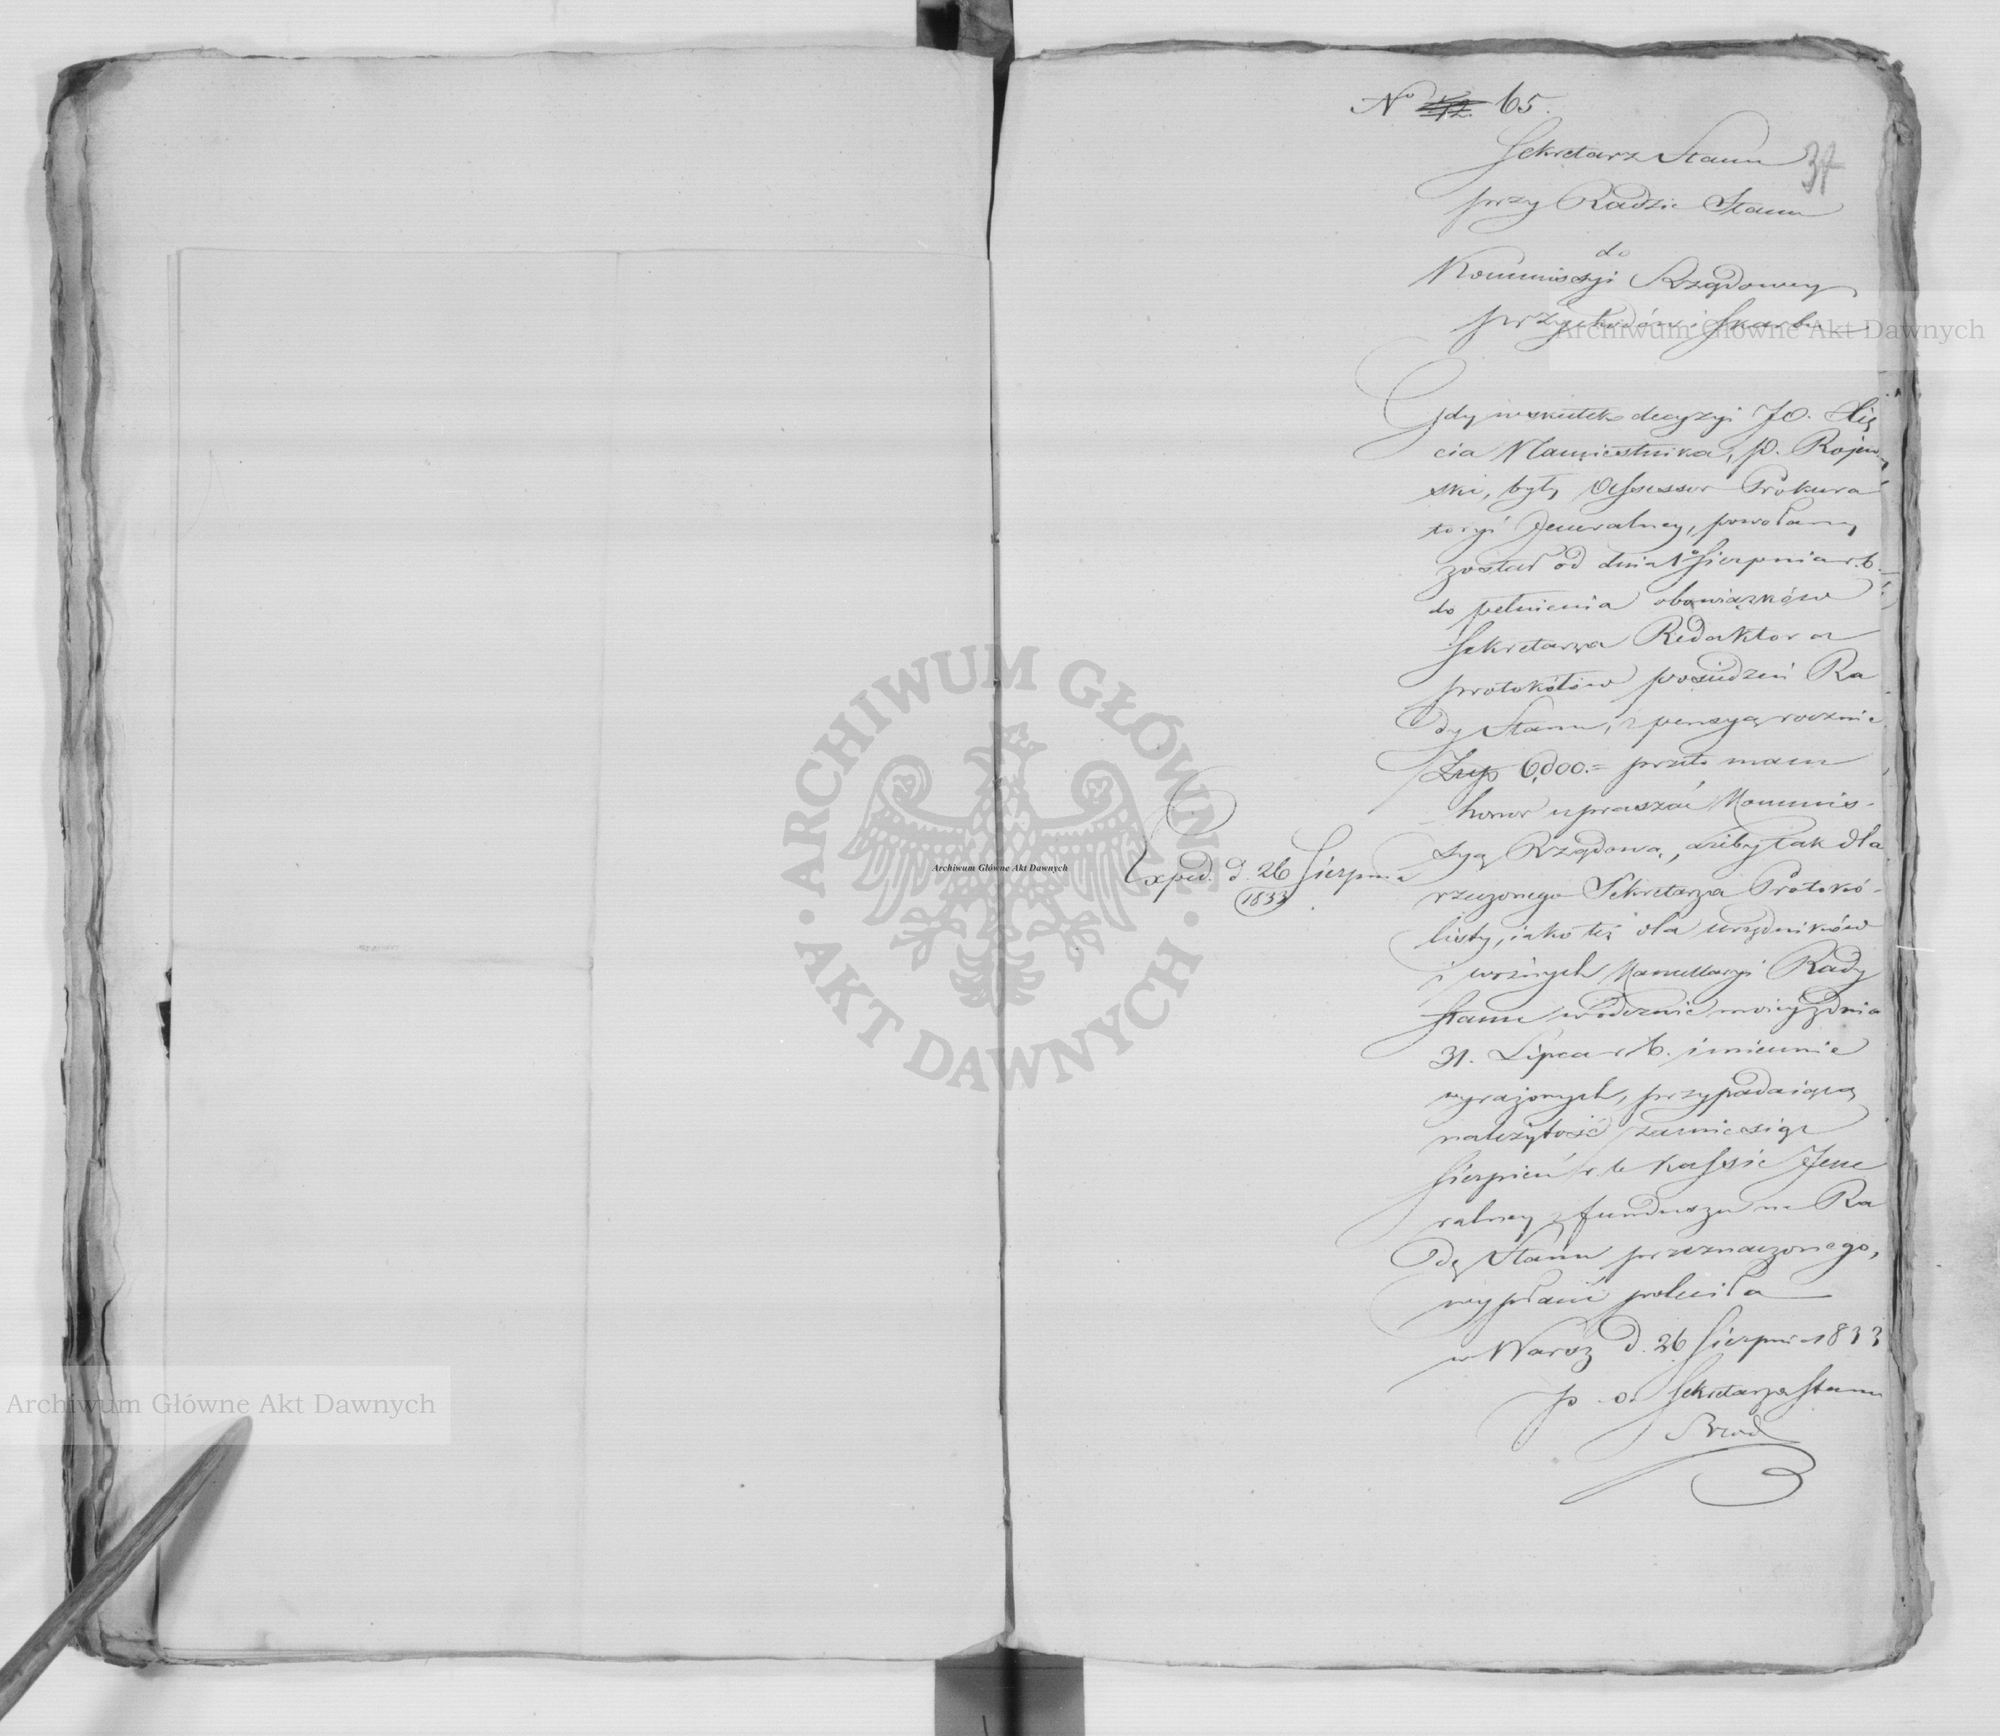 No 65.
37
Sekretarz Stanu
przy Radzie Stanu
do
Kommissyi Rządowey
przychodów i Skarbu
Gdy w skutek decyzyi JO. Xię
cia Namiestnika, p. Rojew
ski, były Assessor Prokura
toryi Jeneralney, powołany
został od dnia 1o Sierpnia r. b.
do pełnienia obowiązków
Sekretarza Redaktora
protokółów posiedzeń Ra
dy Stanu, z pensyą rocznie
Złp 6,000.= przeto mam
honor upraszać Kommis-
syą Rządową, ażeby tak dla
rzeczonego Sekretarza Protokó-
listy, iako też dla urzędników
i woźnych Kancellaryi Rady
Stanu w odezwie moiey z dnia
31. Lipca r. b. imiennie
wyrażonych, przypadaiącą
należytość za miesiąc
Sierpień r. b. w Kassie Jene
ralney z funduszu na Ra
dę Stanu przeznaczonego,
wypłacić poleciła
w Warsz d. 26 Sierpnia 1833
p. o. Sekretarza Stanu
Exped. d. 26 Sierpnia
1833
Archiwum Główne Akt Dawnych
Archiwum Główne Akt Dawnych
Archiwum Główne Akt Dawnych
ARCHIWUM GŁÓWNE • AKT DAWNYCH •